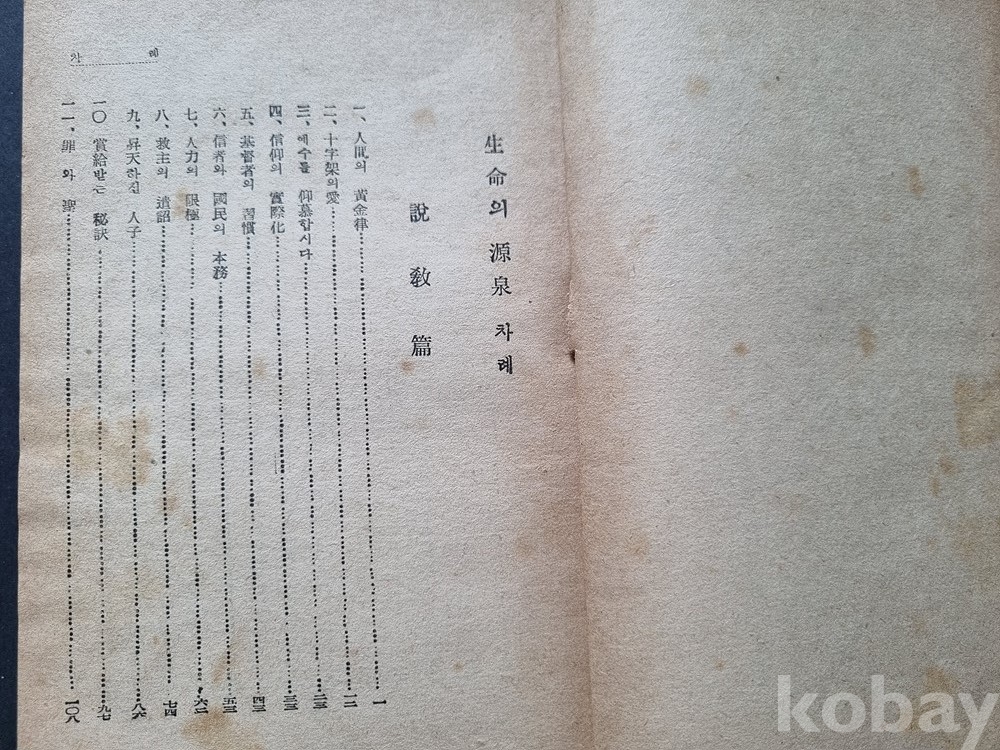 生命의 源泉 차례
說敎篇
一、人間의 黃金律……一
二、十字架의 愛……一二
三、예수를 仰慕합시다……二三
四、信仰의 實際化……三三
五、基督者의 習慣……四三
六、信者와 國民의 本務……五三
七、人力의 限極……六二
八、救主의 遺詔……七四
九、昇天하신 人子……八六
一〇 賞給받는 秘訣……九七
一一、罪와 聖……一〇八
차례
kobay